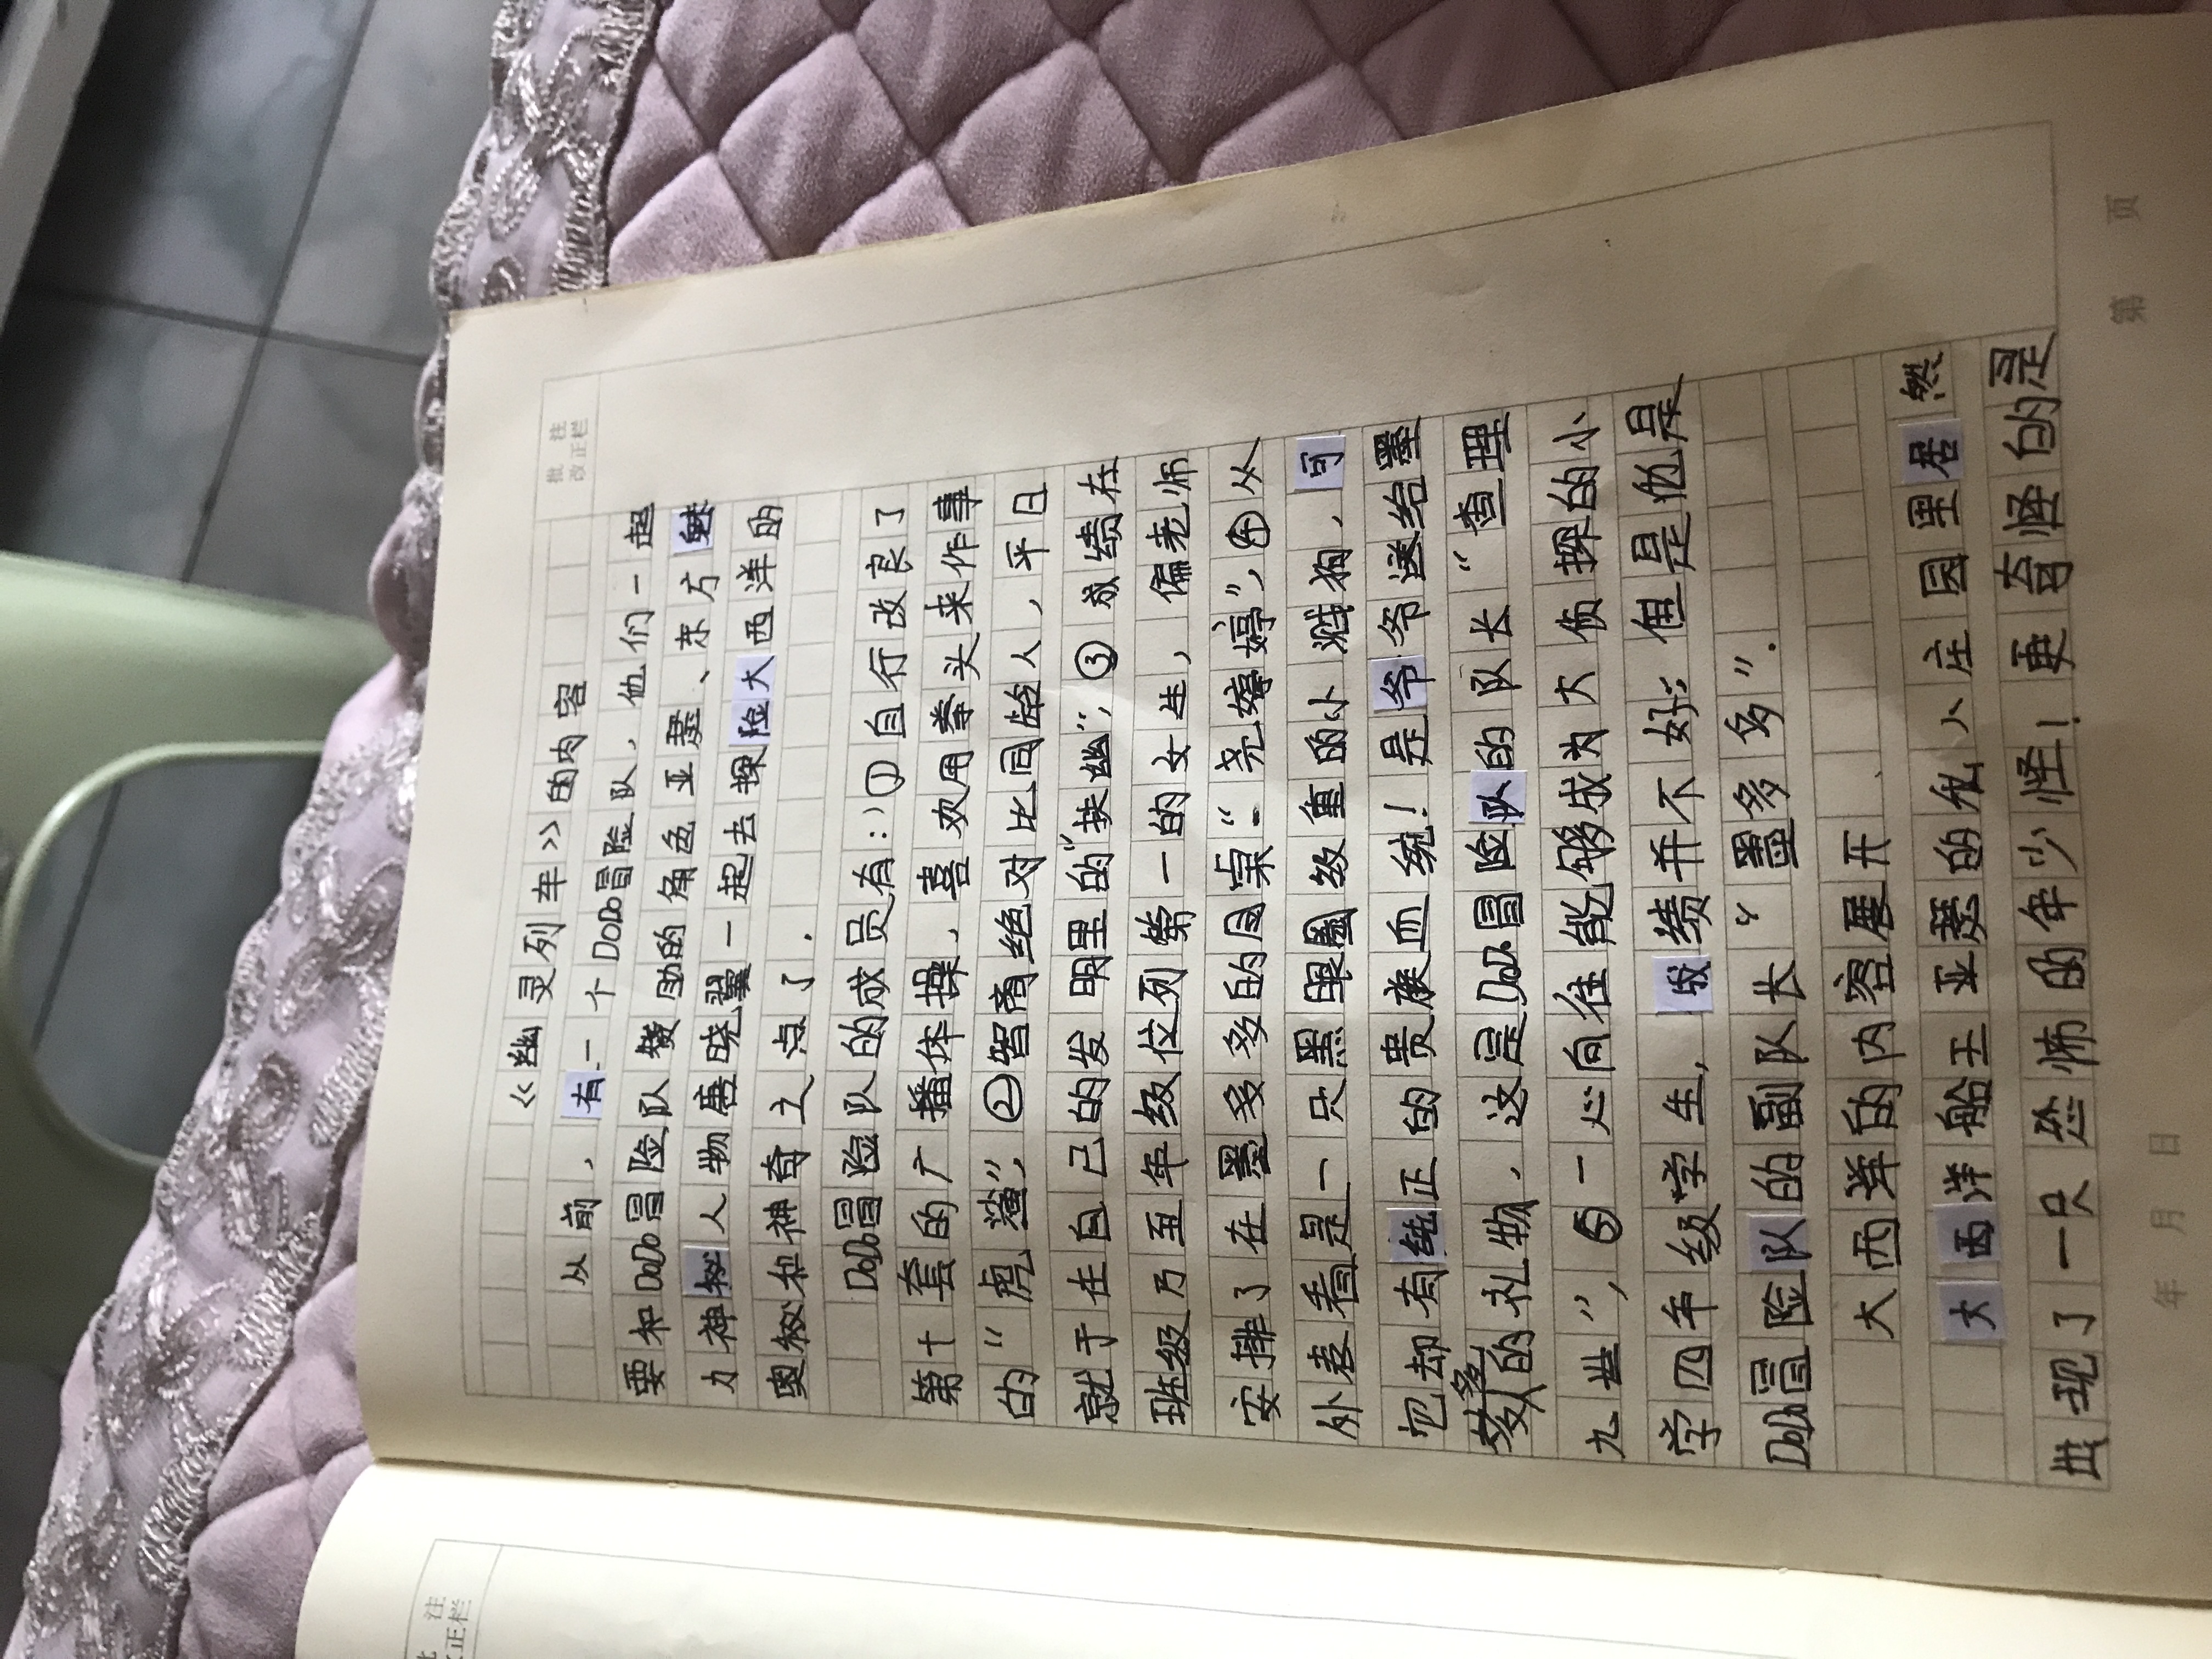 批 注
改正栏
《幽灵列车》的内容
从前，有一个DoDo冒险队，他们一起
要和DoDo冒险队 助的角色亚瑟、东方魅
力神秘人物唐晓翼一起去探险大西洋的
奥秘和神奇之点了.
DoDo冒险队的成员有：①自行改良了
第十套的广播体操，喜欢用拳头来作事
的“虎鲨”，②智商绝对比同龄人，平日
就于在自己的发明里的“扶幽”；③成绩在
班级乃至年级位列第一的女生，偏老师
安排了在墨多多的同桌“尧婷婷”，④从
外表看是一只黑眼圈级重的小贱狗，可
它却有纯正的贵族血统！是爷爷送给墨
多多的礼物，这是DoDo冒险队的队长“查理
九世”，⑤一心向往能够成为大侦探的小
学四年级学生，成绩并不好；但是他是
DoDo冒险队的副队长“墨多多”.
大西洋的内容展开
大西洋船王亚瑟的私人庄园里居然
出现了一只恐怖的年少怪！更奇怪的是
年 月 日
第 页
注
正栏